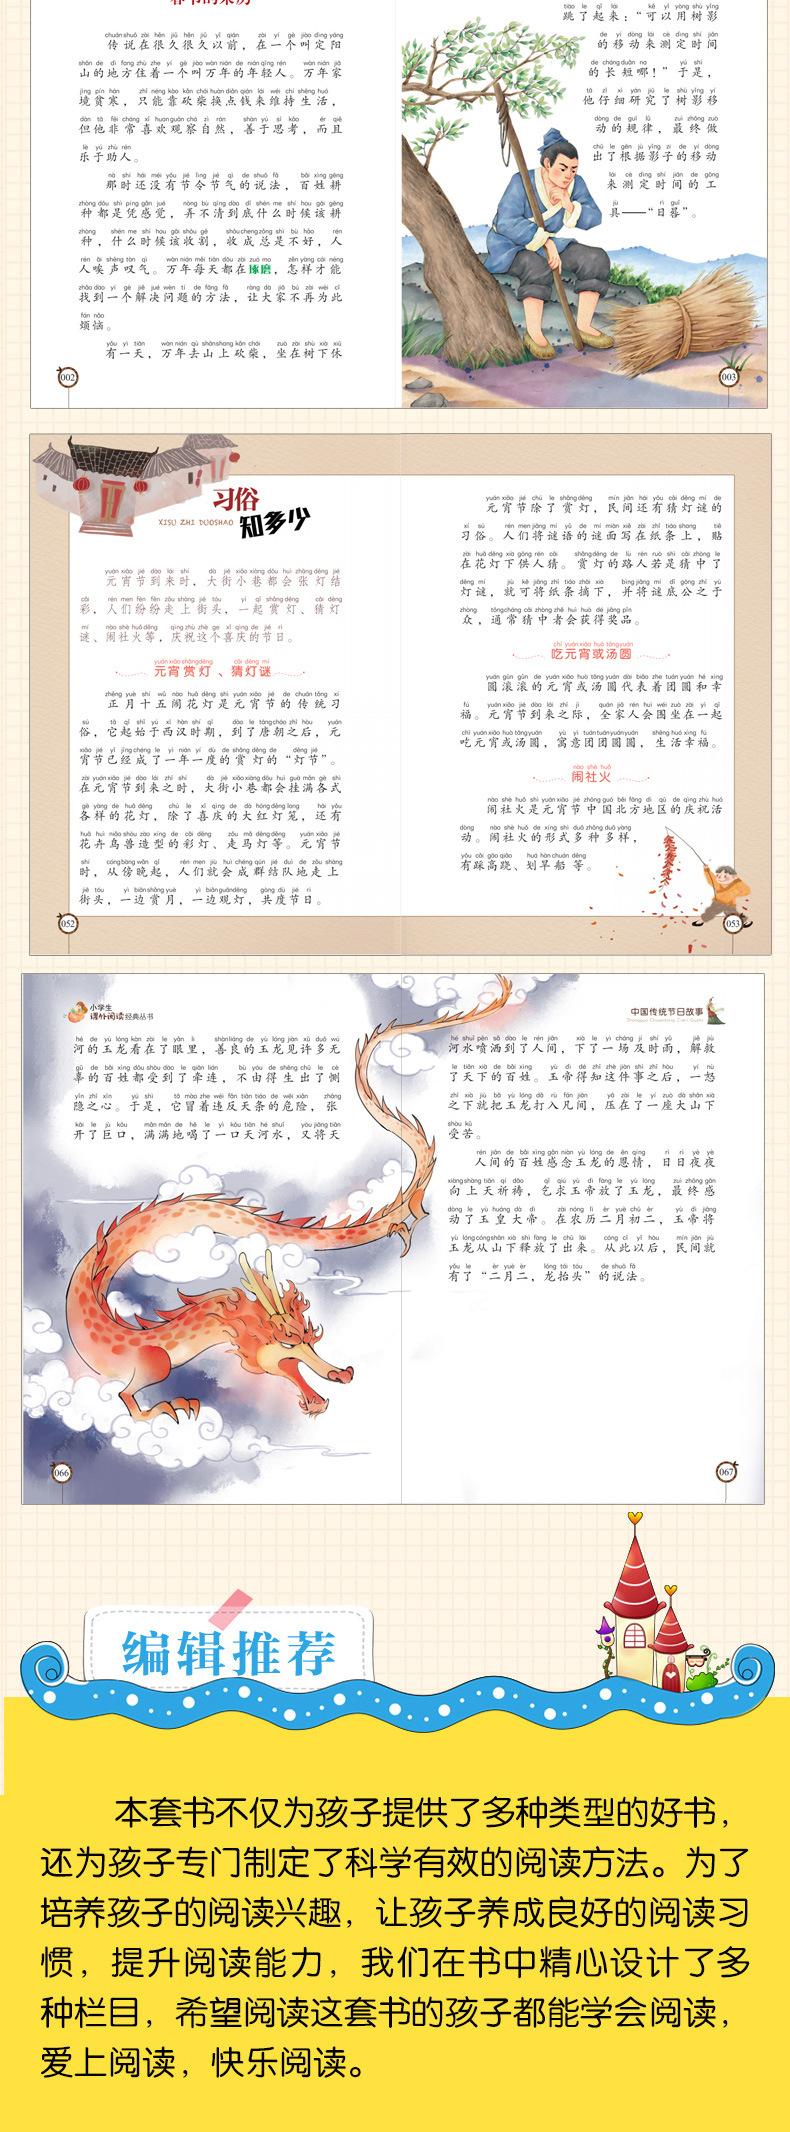 春节的来历
传说在很久很久以前，在一个叫定阳
山的地方住着一个叫万年的年轻人。万年家
境贫寒，只能靠砍柴换点钱来维持生活，
但他非常喜欢观察自然，善于思考，而且
乐于助人。
那时还没有节令节气的说法，百姓耕
种都是凭感觉，弄不清到底什么时候该耕
种，什么时候该收割，收成总是不好，人
人唉声叹气。万年每天都在琢磨，怎样才能
找到一个解决问题的方法，让大家不再为此
烦恼。
有一天，万年去山上砍柴，坐在树下休
002
跳了起来：“可以用树影
的移动来测定时间
的长短哪！”于是，
他仔细研究了树影移
动的规律，最终做
出了根据影子的移动
来测定时间的工
具——“日晷”。
003
习俗
XISU ZHI DUOSHAO
知多少
元宵节到来时，大街小巷都会张灯结
彩，人们纷纷走上街头，一起赏灯、猜灯
谜、闹社火等，庆祝这个喜庆的节日。
元宵赏灯、猜灯谜
正月十五闹花灯是元宵节的传统习
俗，它起始于西汉时期，到了唐朝之后，元
宵节已经成了一年一度的赏灯的“灯节”。
在元宵节到来之时，大街小巷都会挂满各式
各样的花灯，除了喜庆的大红灯笼，还有
花卉鸟兽造型的彩灯、走马灯等。元宵节
时，从傍晚起，人们就会成群结队地走上
街头，一边赏月，一边观灯，共度节日。
052
元宵节除了赏灯，民间还有猜灯谜的
习俗。人们将谜语的谜面写在纸条上，贴
在花灯下供人猜。赏灯的路人若是猜中了
灯谜，就可将纸条摘下，并将谜底公之于
众，通常猜中者会获得奖品。
吃元宵或汤圆
圆滚滚的元宵或汤圆代表着团圆和幸
福。元宵节到来之际，全家人会围坐在一起
吃元宵或汤圆，寓意团团圆圆，生活幸福。
闹社火
闹社火是元宵节中国北方地区的庆祝活
动。闹社火的形式多种多样，
有踩高跷、划旱船等。
053
小学生
课外阅读经典丛书
河的玉龙看在了眼里，善良的玉龙见许多无
辜的百姓都受到了牵连，不由得生出了恻
隐之心。于是，它冒着违反天条的危险，张
开了巨口，满满地喝了一口天河水，又将天
066
中国传统节日故事
河水喷洒到了人间，下了一场及时雨，解救
了天下的百姓。玉帝得知这件事之后，一怒
之下就把玉龙打入凡间，压在了一座大山下
受苦。
人间的百姓感念玉龙的恩情，日日夜夜
向上天祈祷，乞求玉帝放了玉龙，最终感
动了玉皇大帝。在农历二月初二，玉帝将
玉龙从山下释放了出来。从此以后，民间就
有了“二月二，龙抬头”的说法。
067
编辑推荐
本套书不仅为孩子提供了多种类型的好书，
还为孩子专门制定了科学有效的阅读方法。为了
培养孩子的阅读兴趣，让孩子养成良好的阅读习
惯，提升阅读能力，我们在书中精心设计了多
种栏目，希望阅读这套书的孩子都能学会阅读，
爱上阅读，快乐阅读。